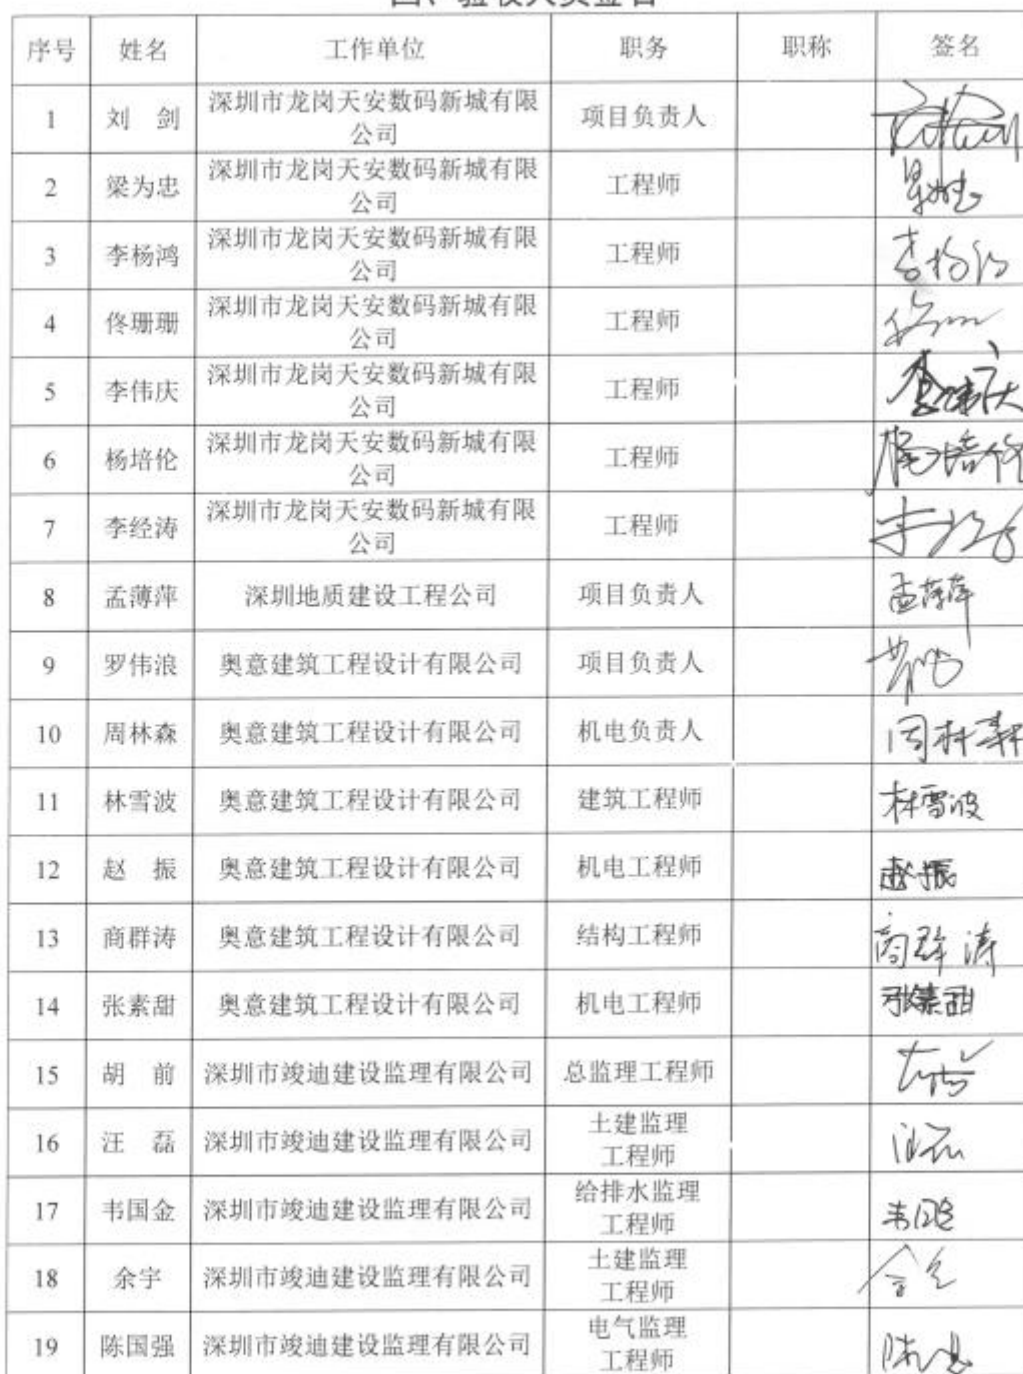 四、验收人员签名
序号 姓名 工作单位 职务 职称 签名
1 刘 剑 深圳市龙岗天安数码新城有限
公司 项目负责人
2 梁为忠 深圳市龙岗天安数码新城有限
公司 工程师
3 李杨鸿 深圳市龙岗天安数码新城有限
公司 工程师 李杨鸿
4 佟珊珊 深圳市龙岗天安数码新城有限
公司 工程师
5 李伟庆 深圳市龙岗天安数码新城有限
公司 工程师 李伟庆
6 杨培伦 深圳市龙岗天安数码新城有限
公司 工程师 杨培伦
7 李经涛 深圳市龙岗天安数码新城有限
公司 工程师
8 孟薄萍 深圳地质建设工程公司 项目负责人 孟薄萍
9 罗伟浪 奥意建筑工程设计有限公司 项目负责人
10 周林森 奥意建筑工程设计有限公司 机电负责人 周林森
11 林雪波 奥意建筑工程设计有限公司 建筑工程师 林雪波
12 赵 振 奥意建筑工程设计有限公司 机电工程师 赵振
13 商群涛 奥意建筑工程设计有限公司 结构工程师 商群涛
14 张素甜 奥意建筑工程设计有限公司 机电工程师 张素甜
15 胡 前 深圳市竣迪建设监理有限公司 总监理工程师
16 汪 磊 深圳市竣迪建设监理有限公司 土建监理
工程师 汪磊
17 韦国金 深圳市竣迪建设监理有限公司 给排水监理
工程师 韦国金
18 余宇 深圳市竣迪建设监理有限公司 土建监理
工程师
19 陈国强 深圳市竣迪建设监理有限公司 电气监理
工程师